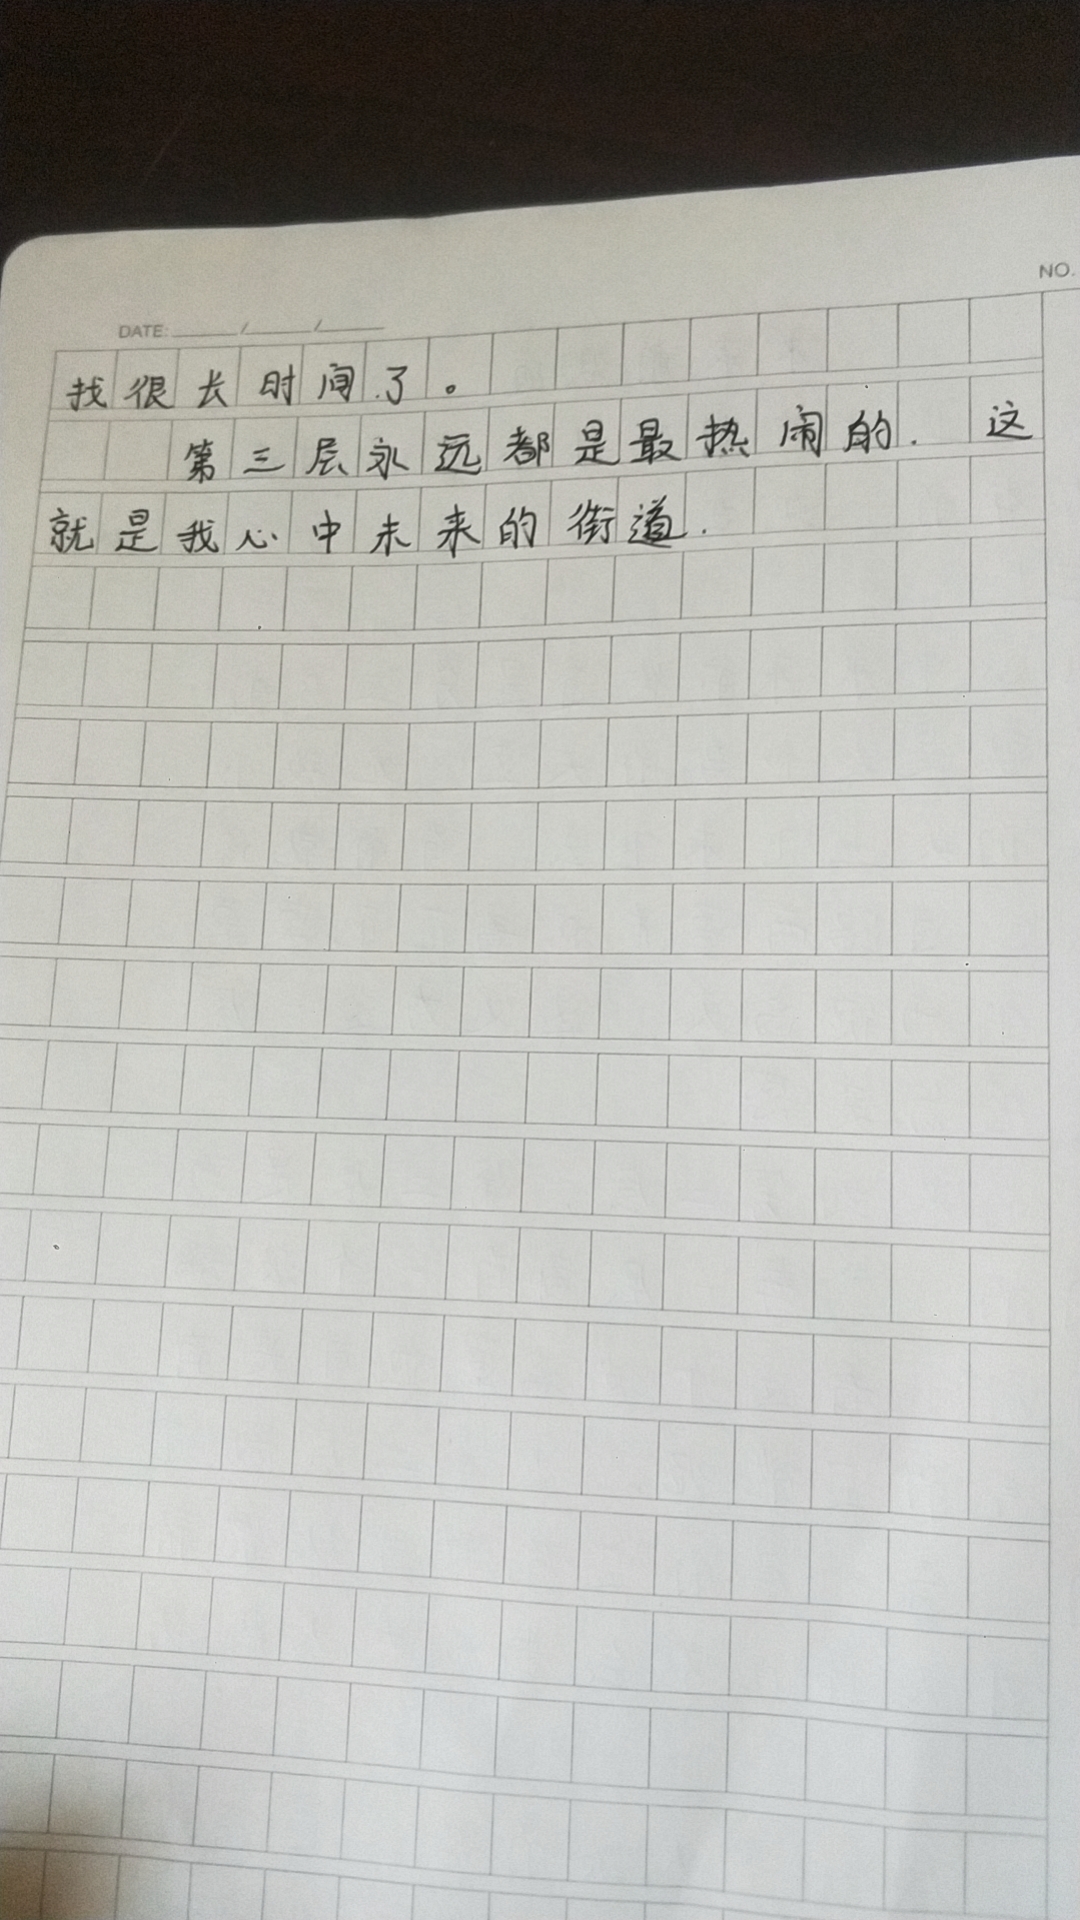 NO.
DATE: / /
找很长时间了。
第三层永远都是最热闹的. 这
就是我心中未来的街道.